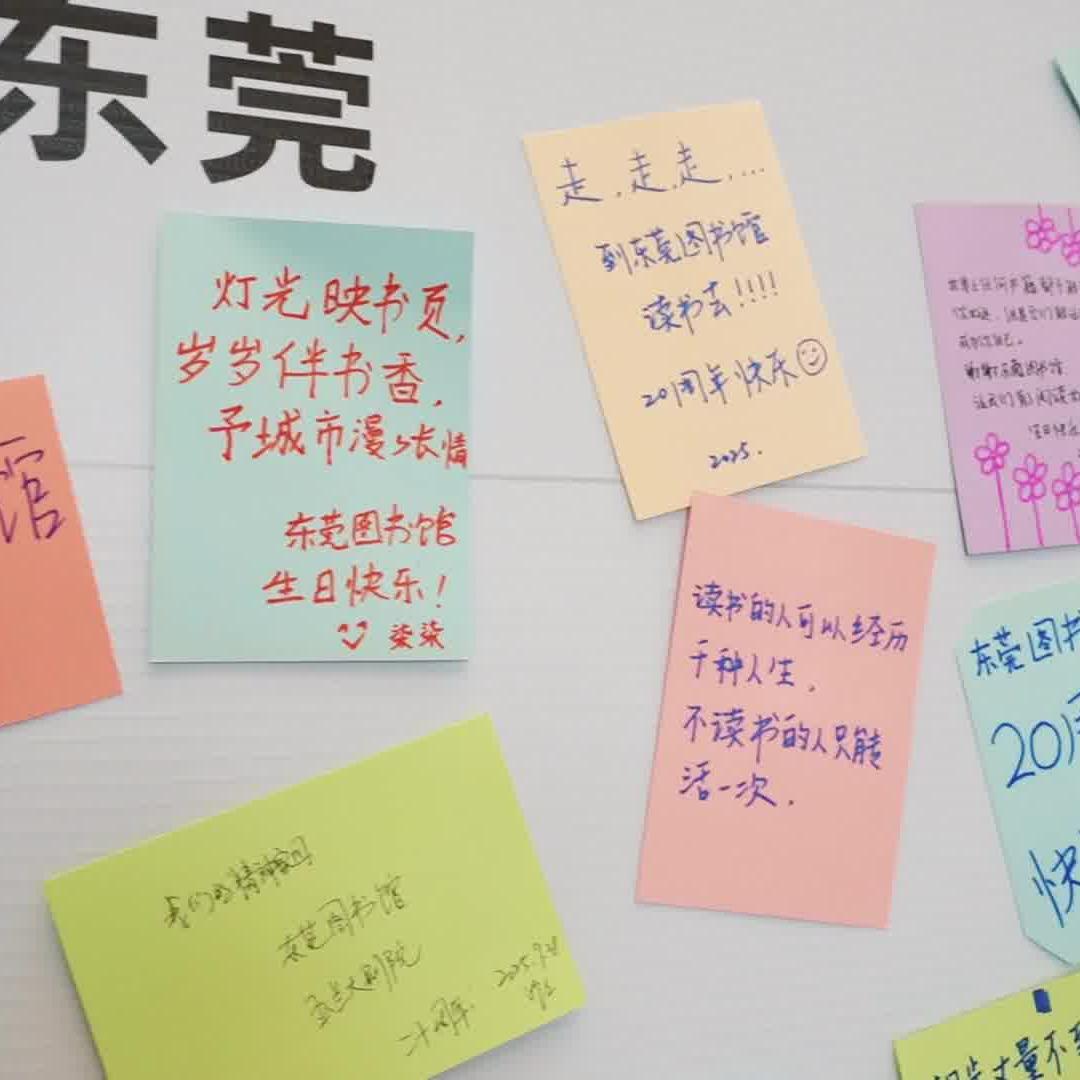 东莞
灯光映书页,
岁岁伴书香,
予城市漫张情
东莞图书馆
生日快乐!
柒柒
走,走,走....
到东莞图书馆
读书去!!!!
20周年快乐
2025.
谢谢东莞图书馆
馆
读书的人可以经历
千种人生,
不读书的人只能
活一次.
东莞图书
20周
快
我们的精神家园
东莞图书馆
玉兰大剧院
二十周年
2025.9.28
丈量不到